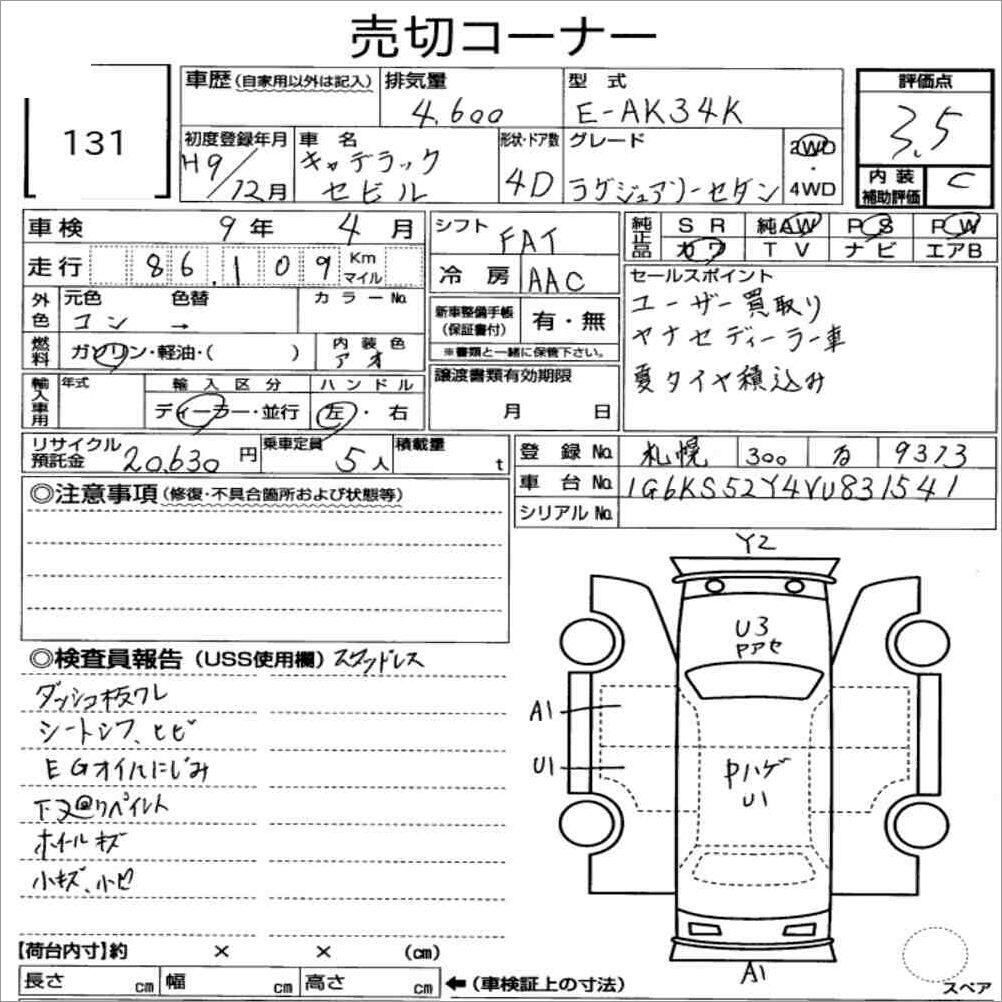 売切コーナー
131
車歴(自家用以外は記入) 排気量 4,600 型式 E-AK34K 評価点 3.5
初度登録年月 H9/12月 車名 キャデラック セビル 形状・ドア数 4D グレード ラグジュアリーセダン 2WD・4WD 内装補助評価 C
車検 9年 4月 シフト FAT 純正品 SR 純AW PS PW
カワ TV ナビ エアB
走行 86,109 Km マイル 冷房 AAC
セールスポイント
ユーザー買取り
ヤナセディーラー車
夏タイヤ積込み
外色 元色 コン 色替 → カラーNo.
新車整備手帳(保証書付) 有・無
※書類と一緒に保管下さい。
燃料 ガソリン・軽油・( ) 内装色 アオ
譲渡書類有効期限 月 日
輸入車用 年式 輸入区分 ディーラー・並行 ハンドル 左・右
リサイクル預託金 20,630円 乗車定員 5人 積載量 t
登録No. 札幌 300 9373
車台No. 1G6KS52Y4VU831541
シリアルNo.
◎注意事項(修復・不具合箇所および状態等)
◎検査員報告(USS使用欄) スタッドレス
ダッシュ板ワレ
シートシワ、ヒビ
EGオイルにじみ
下廻りペイント
ホイールキズ
小キズ、小凹
Y2
U3
Pアセ
A1
U1
Pハゲ
U1
A1
スペア
【荷台内寸】約 × × (cm)
長さ cm 幅 cm 高さ cm ←(車検証上の寸法)